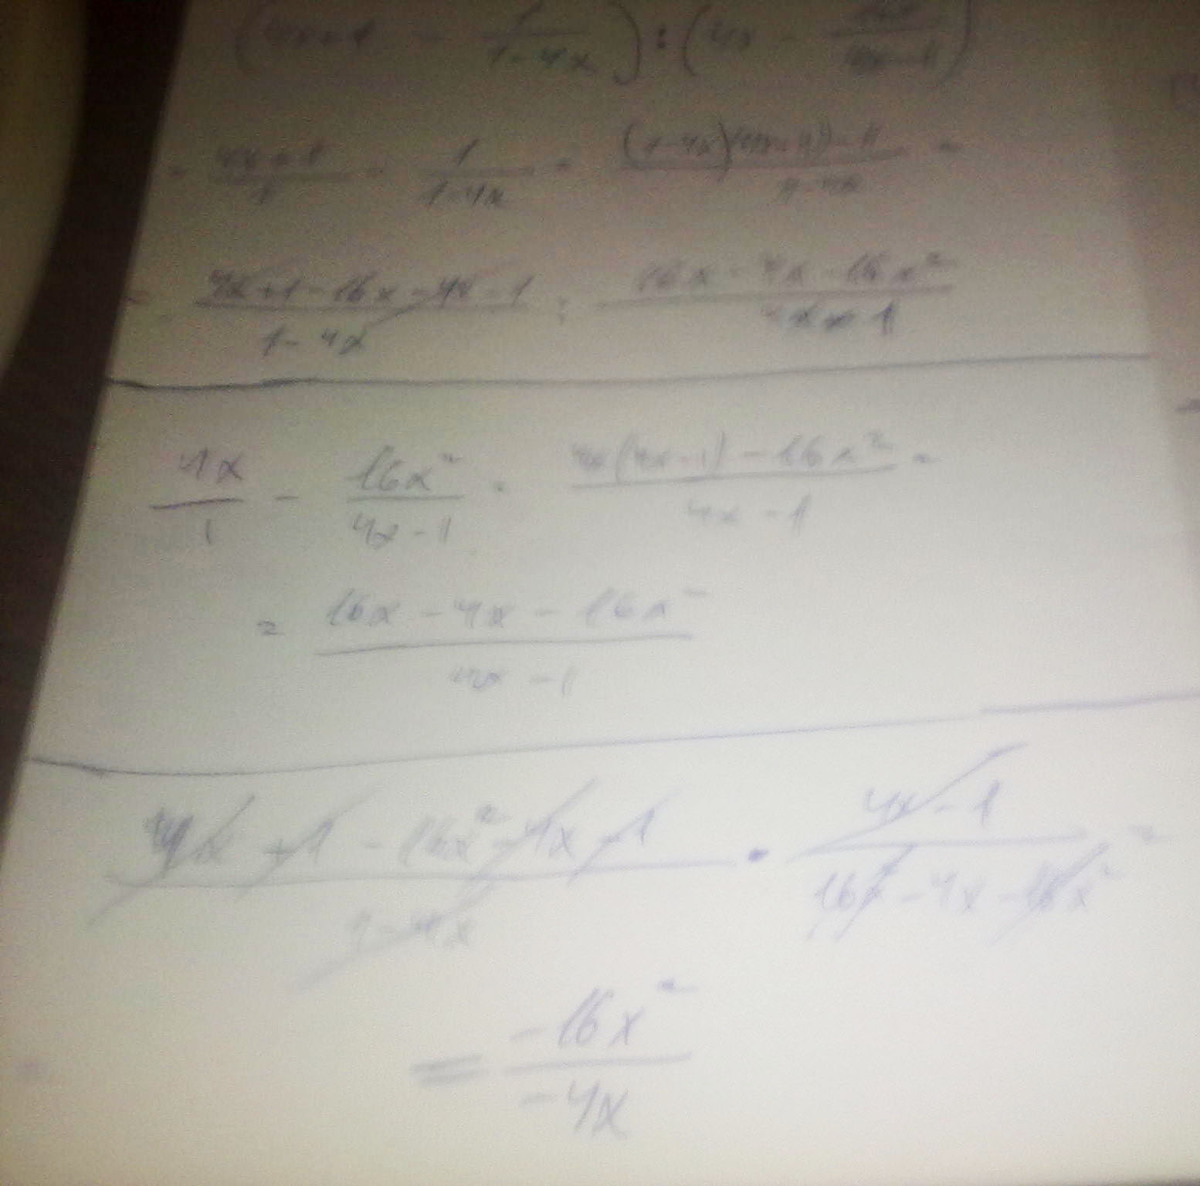 (4x+1 - 1/(1-4x)) : (4x - 16x²/(4x-1))
= (4x+1)/1 - 1/(1-4x) = ((1-4x)(4x+1)-1)/(1-4x) =
= (4x+1-16x-4x-1)/(1-4x) : (16x-4x-16x²)/(4x-1)
4x/1 - 16x²/(4x-1) = (4x(4x-1)-16x²)/(4x-1) =
= (16x-4x-16x²)/(4x-1)
(4x+1-16x²-4x-1)/(1-4x) · (4x-1)/(16x-4x-16x²) =
= (-16x²)/(-4x)